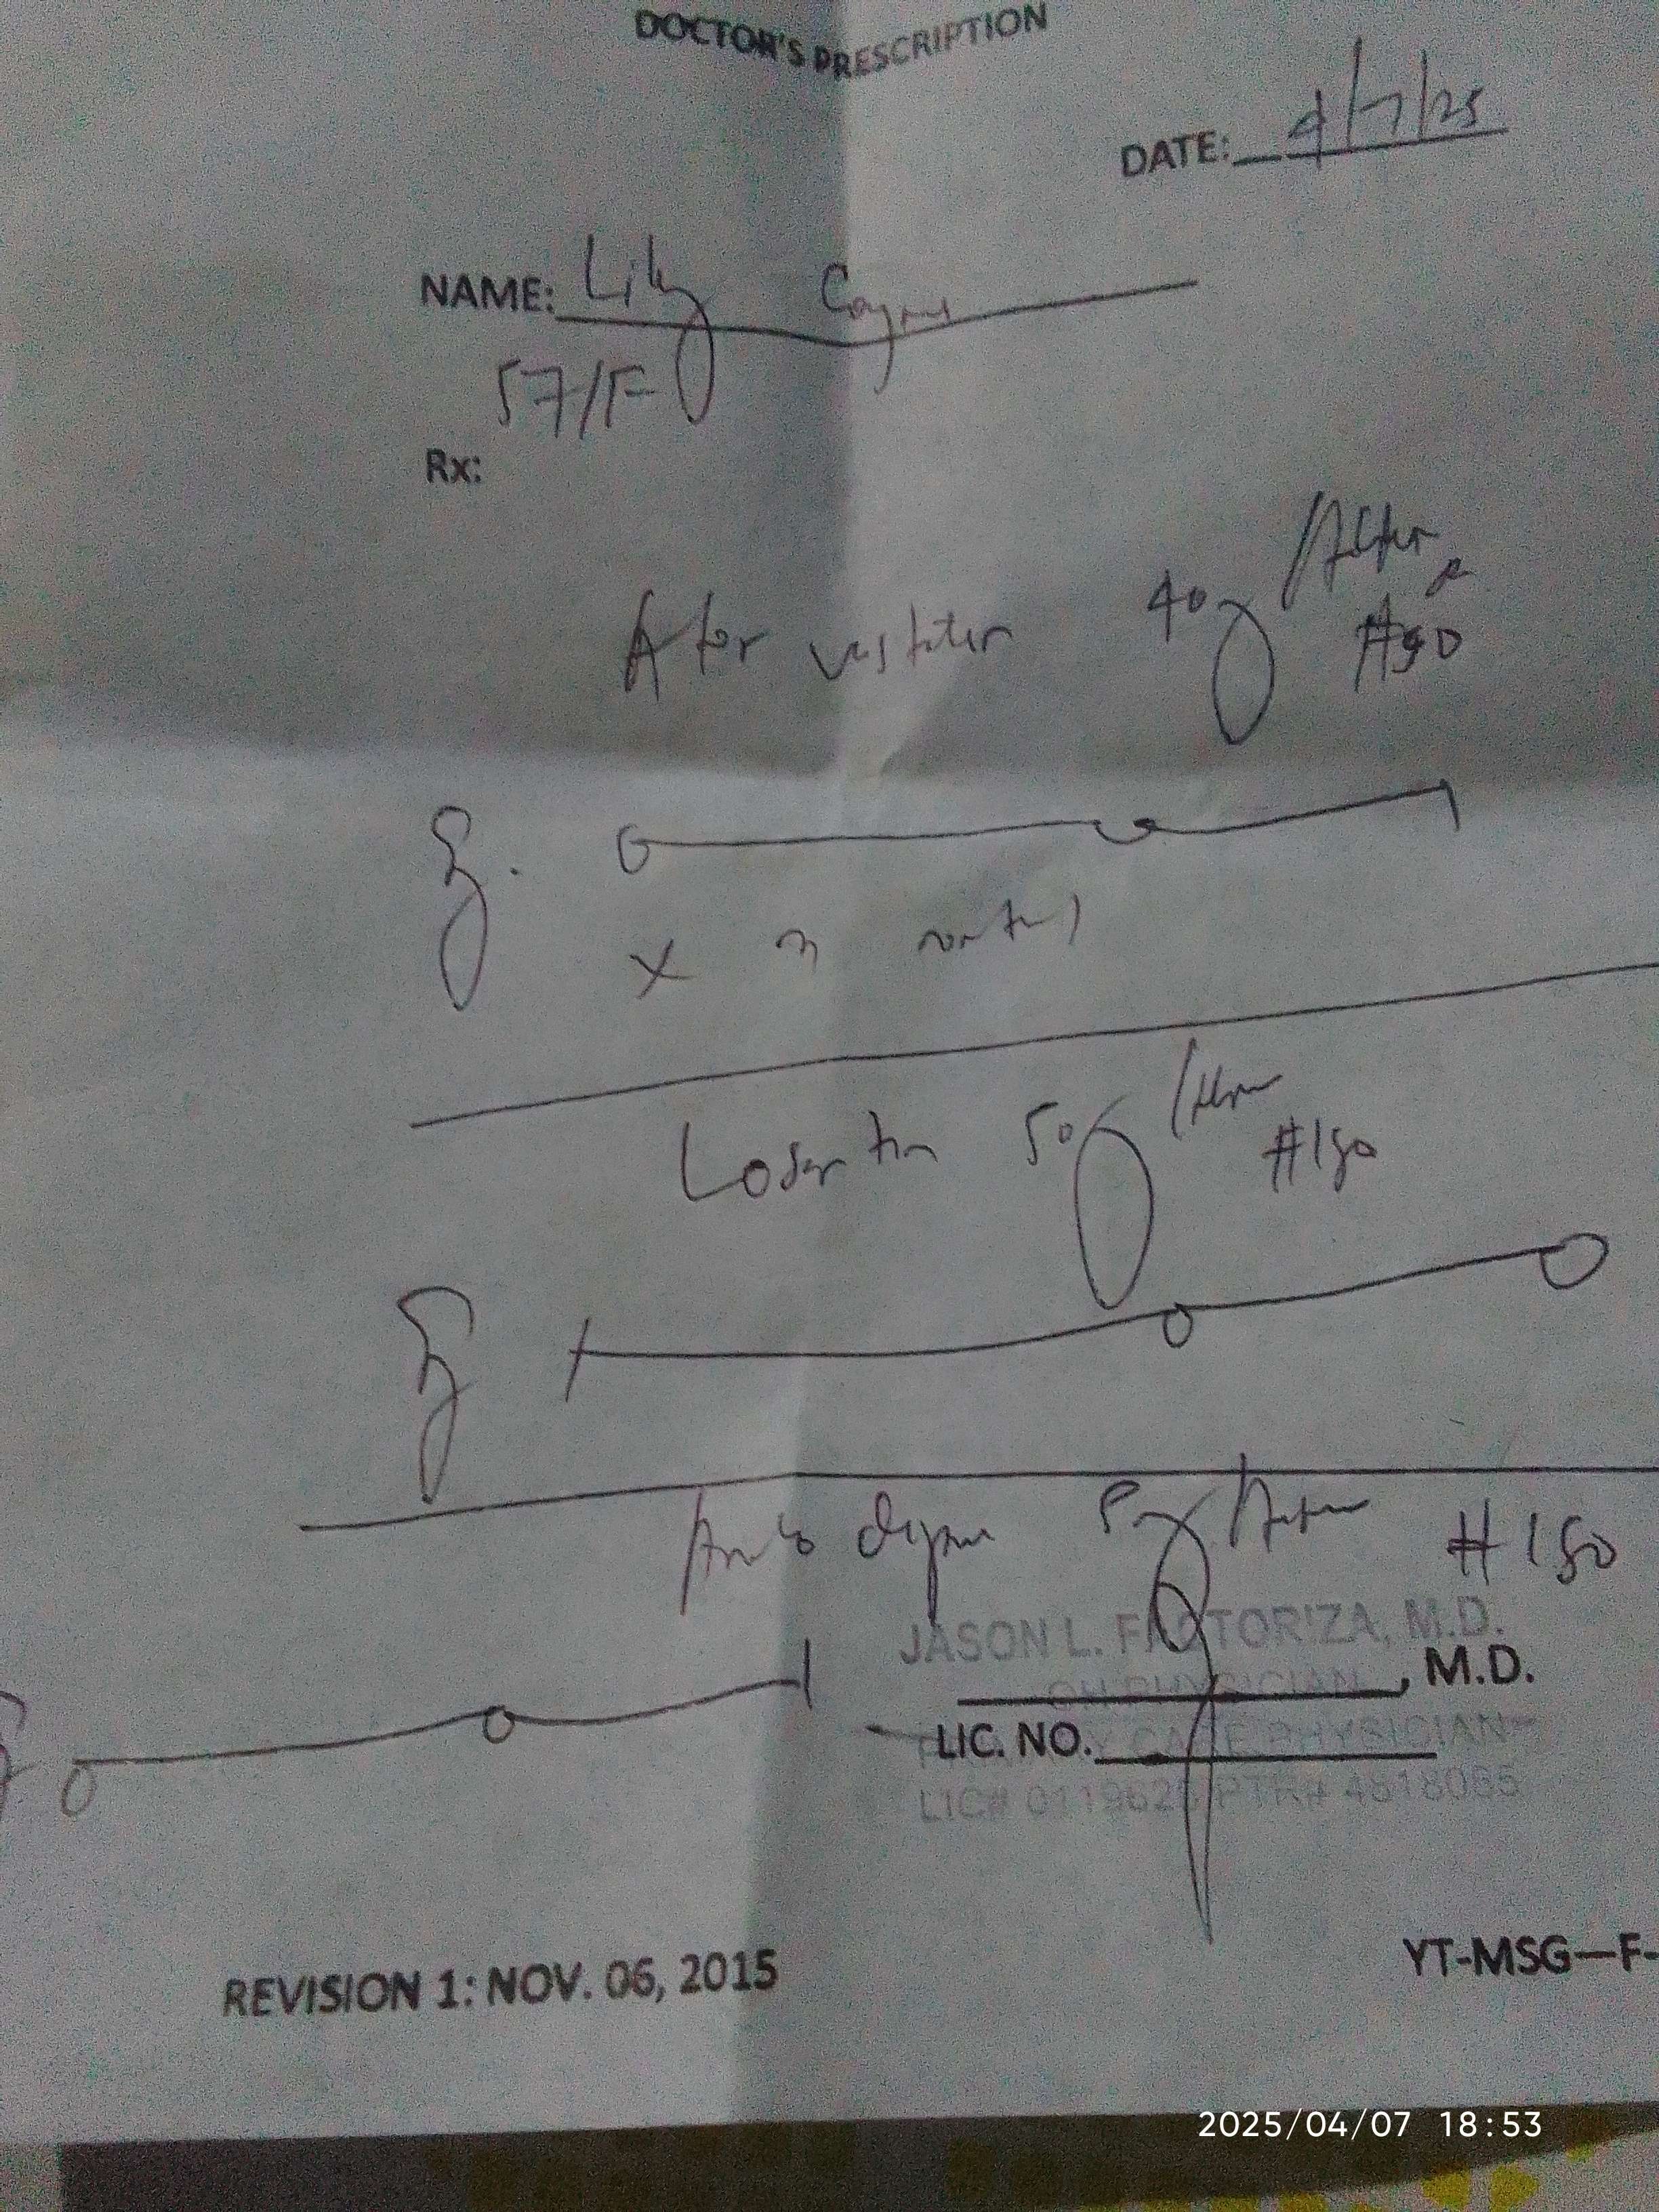 DOCTOR'S PRESCRIPTION
DATE: 4/7/25
NAME: Lily
57/F
Rx:
Atorvastatin 40mg
#90
x 3 months
Losartan 50mg
#180
Amlodipine 5mg #180
JASON L. FACTORIZA, M.D.
, M.D.
OH PHYSICIAN
LIC. NO.
PRIMARY CARE PHYSICIAN
LIC# PTR#
REVISION 1: NOV. 06, 2015
YT-MSG—F-
2025/04/07 18:53